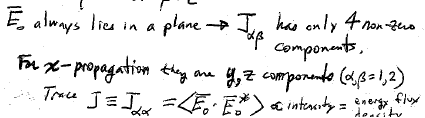 E̅₀ always lies in a plane → J_αβ has only 4 non-zero
components.
For x-propagation they are y, z components (α,β=1,2)
Trace J ≡ J_αα = <E̅₀·E̅₀*> ∝ intensity = energy flux
density